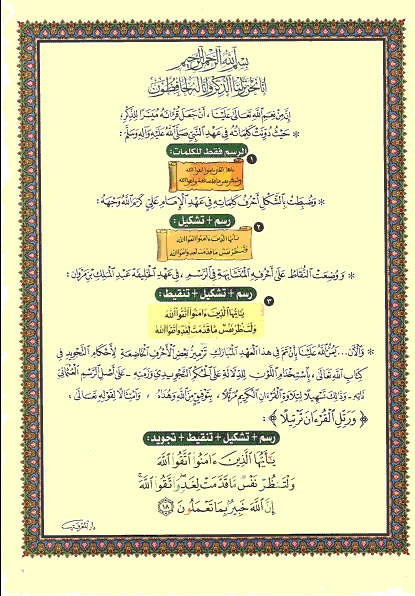 بسم الله الرحمن الرحيم
إنا نحن نزلنا الذكر وإنا له لحافظون
إن من نعم الله تعالى علينا، أن جعل قرآنه ميسرا للذكر،
* حيث دونت كلماته في عهد النبي صلى الله عليه وآله وسلم:
الرسم فقط للكلمات:
١
* وضبطت بالشكل أحرف كلماته في عهد الإمام علي كرم الله وجهه:
رسم + تشكيل:
٢
* ووضعت النقاط على أحرفه المتشابهة في الرسم، في عهد الخليفة عبد الملك بن مروان:
رسم + تشكيل + تنقيط:
٣
يأيها الذين ءامنوا اتقوا الله
ولتنظر نفس ما قدمت لغد واتقوا الله
* والآن... يمن الله علينا بأن تم في هذا العهد المبارك ترميز بعض الأحرف الخاضعة لأحكام التجويد في
كتاب الله تعالى، باستخدام اللون للدلالة على الحكم التجويدي وزمنه - على أصل الرسم العثماني
ذاته - وذلك تسهيلا لتلاوة القرءان الكريم مرتلا، بتوفيق من الله وهداه، وامتثالا لقوله تعالى،
﴿ ورتل القرءان ترتيلا ﴾:
رسم + تشكيل + تنقيط + تجويد:
يَٰٓأَيُّهَا ٱلَّذِينَ ءَامَنُوا۟ ٱتَّقُوا۟ ٱللَّهَ
وَلْتَنظُرْ نَفْسٌ مَّا قَدَّمَتْ لِغَدٍ وَٱتَّقُوا۟ ٱللَّهَ
إِنَّ ٱللَّهَ خَبِيرٌۢ بِمَا تَعْمَلُونَ ١٨